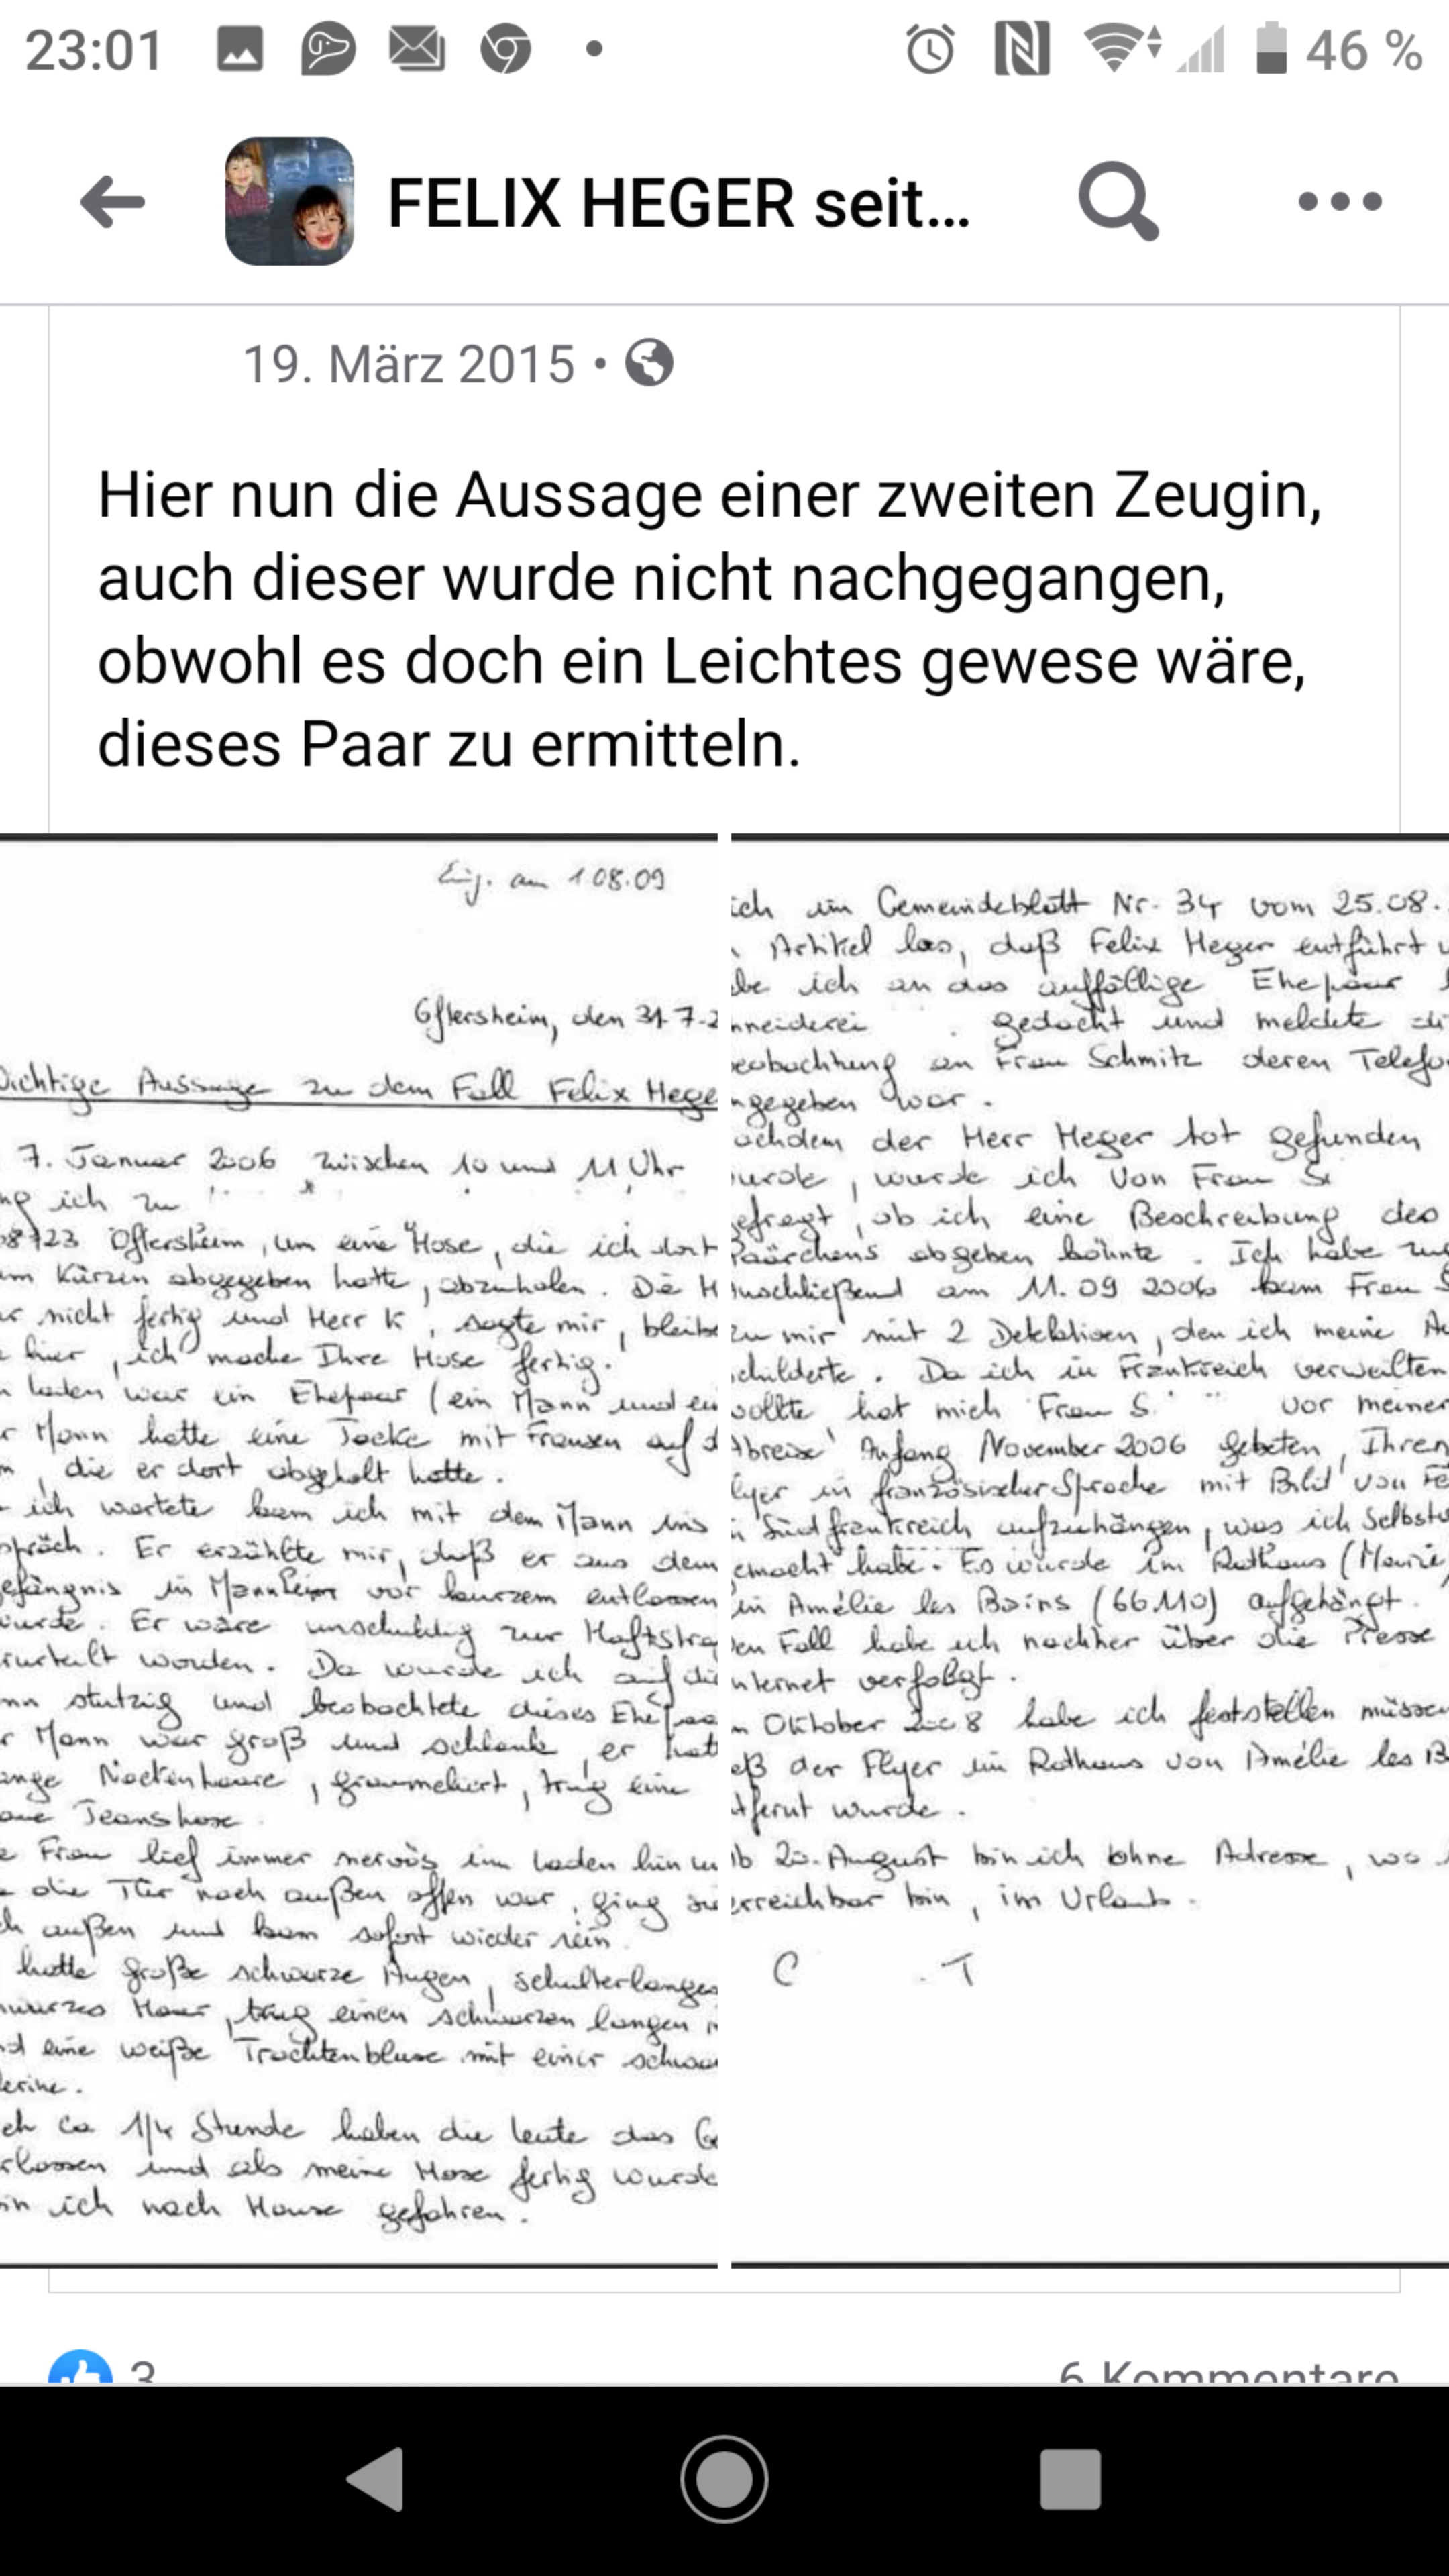 23:01
46 %
FELIX HEGER seit...
19. März 2015 •
Hier nun die Aussage einer zweiten Zeugin,
auch dieser wurde nicht nachgegangen,
obwohl es doch ein Leichtes gewese wäre,
dieses Paar zu ermitteln.
Eig. am 1.08.09
Oftersheim, den 31.7.2
Wichtige Aussage zu dem Fall Felix Hege
7. Januar 2006 zwischen 10 und 11 Uhr
ng ich zu
68723 Oftersheim, um eine Hose, die ich dort
um Kürzen abgegeben hatte, abzuholen. Die H
ar nicht fertig und Herr K , sagte mir, bleibe
e hier, ich mache Ihre Hose fertig.
m laden war ein Ehepaar (ein Mann und ei
r Mann hatte eine Jacke mit Fransen auf d
m, die er dort abgeholt hatte.
ich wartete kam ich mit dem Mann ins
spräch. Er erzählte mir, daß er aus dem
efängnis in Mannheim vor kurzem entlassen
wurde. Er wäre unschuldig zur Haftstra
rurteilt worden. Da wurde ich auf die
nn stutzig und beobachtete dieses Ehepaa
r Mann war groß und schlank, er hat
ange Nackenhaare, graumeliert, trug eine
aue Jeanshose
e Frau lief immer nervös im laden hin u
e die Tür nach außen offen war, ging sie
ch außen und kam sofort wieder rein.
hatte große schwarze Augen, schulterlanges
hwarzes Haar, trug einen schwarzen langen r
nd eine weiße Trachtenbluse mit einer schwa
lerine.
ch ca 1/4 Stunde haben die leute das Ge
rlassen und als meine Hose fertig wurde
in ich nach Hause gefahren.
ich im Gemeindeblatt Nr. 34 vom 25.08.
Artikel las, daß Felix Heger entführt w
be ich an das auffällige Ehepaar
hneiderei . gedacht und meldete di
eobachtung an Frau Schmitz deren Telefo
ngegeben war.
achdem der Herr Heger tot gefunden
urde, wurde ich von Frau S
efragt, ob ich eine Beschreibung des
Päärchens abgeben könnte. Ich habe
nschließend am 11.09 2006 kam Frau S
zu mir mit 2 Detektiven, den ich meine Au
childerte. Da ich in Frankreich verweilten
sollte, hat mich Frau S. vor meiner
Abreise Anfang November 2006 gebeten, Ihren
lyer in französischer Sprache mit Bild von Fe
in Südfrankreich aufzuhängen, was ich Selbstv
emacht habe. Es wurde im Rathaus (Mairie)
in Amélie les Bains (66110) aufgehängt.
en Fall habe ich nachher über die Presse
nternet verfolgt.
m Oktober 2008 habe ich feststellen müssen
aß der Flyer im Rathaus von Amélie les B
tfernt wurde.
b 20. August bin ich ohne Adresse, wo
erreichbar bin, im Urlaub.
C . T
3
6 Kommentare